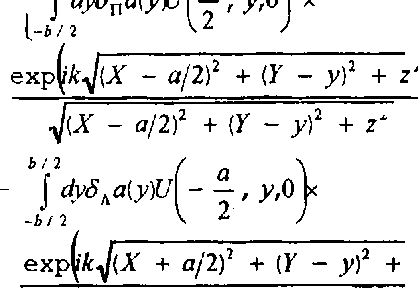 ∫_{-b/2} dyδ_Π a(y)U(a/2, y,0)×
exp(ik√((X − a/2)² + (Y − y)² + z²
√((X − a/2)² + (Y − y)² + z²
− ∫_{-b/2}^{b/2} dyδ_Λ a(y)U(−a/2, y,0)×
exp(ik√((X + a/2)² + (Y − y)² +